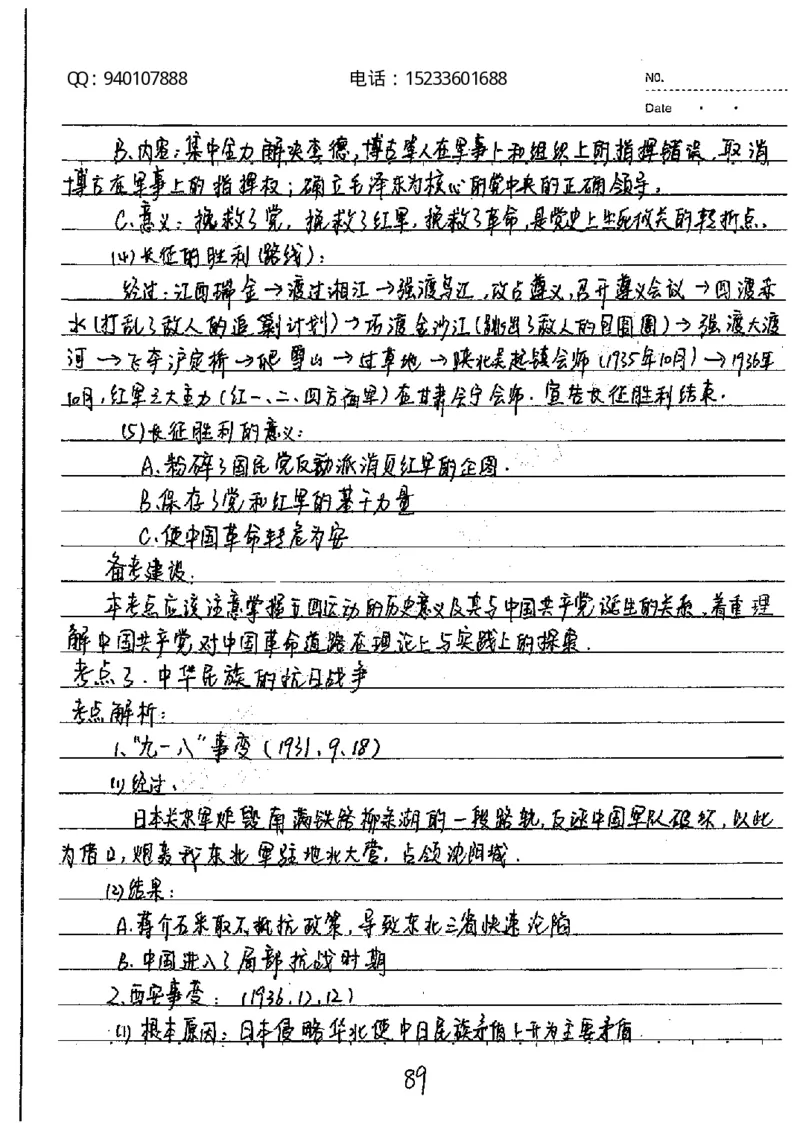 QQ：940107888 电话：15233601688 NO.
Date
B、内容：集中全力解决李德，博古等人在军事上和组织上的指挥错误，取消
博古在军事上的指挥权；确立毛泽东为核心的党中央的正确领导。
C、意义：挽救了党，挽救了红军，挽救了革命，是党史上生死攸关的转折点。
(4)长征的胜利(路线)：
经过：江西瑞金→渡过湘江→强渡乌江，攻占遵义，召开遵义会议→四渡赤
水(打乱了敌人的追剿计划)→巧渡金沙江(跳出了敌人的包围圈)→强渡大渡
河→飞夺泸定桥→爬雪山→过草地→陕北吴起镇会师(1935年10月)→1936年
10月，红军三大主力(红一、二、四方面军)在甘肃会宁会师．宣告长征胜利结束．
(5)长征胜利的意义：
A、粉碎了国民党反动派消灭红军的企图．
B、保存了党和红军的基干力量
C、使中国革命转危为安
备考建设：
本考点应该注意掌握五四运动的历史意义及其与中国共产党诞生的关系，着重理
解中国共产党对中国革命道路在理论上与实践上的探索．
考点3．中华民族的抗日战争
考点解析：
1、“九一八”事变(1931、9、18)
(1)经过、
日本关东军炸毁南满铁路柳条湖的一段路轨，反诬中国军队破坏，以此
为借口，炮轰我东北军驻地北大营，占领沈阳城．
(2)结果：
A、蒋介石采取不抵抗政策，导致东北三省快速沦陷
B、中国进入了局部抗战时期
2、西安事变：(1936、12、12)
(1)根本原因：日本侵略华北使中日民族矛盾上升为主要矛盾
89